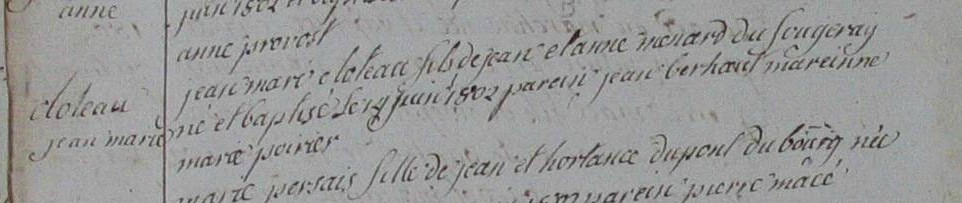 anne
juin 1802 et
anne provost
jean marie cloteau fils de jean et anne menard du fougeray
cloteau
jean marie
né et baptisé le 19 juin 1802 parein jean berhaut mareinne
marie poirier
marie persais fille de jean et hortance dupont du bourg née
parein pierre macé